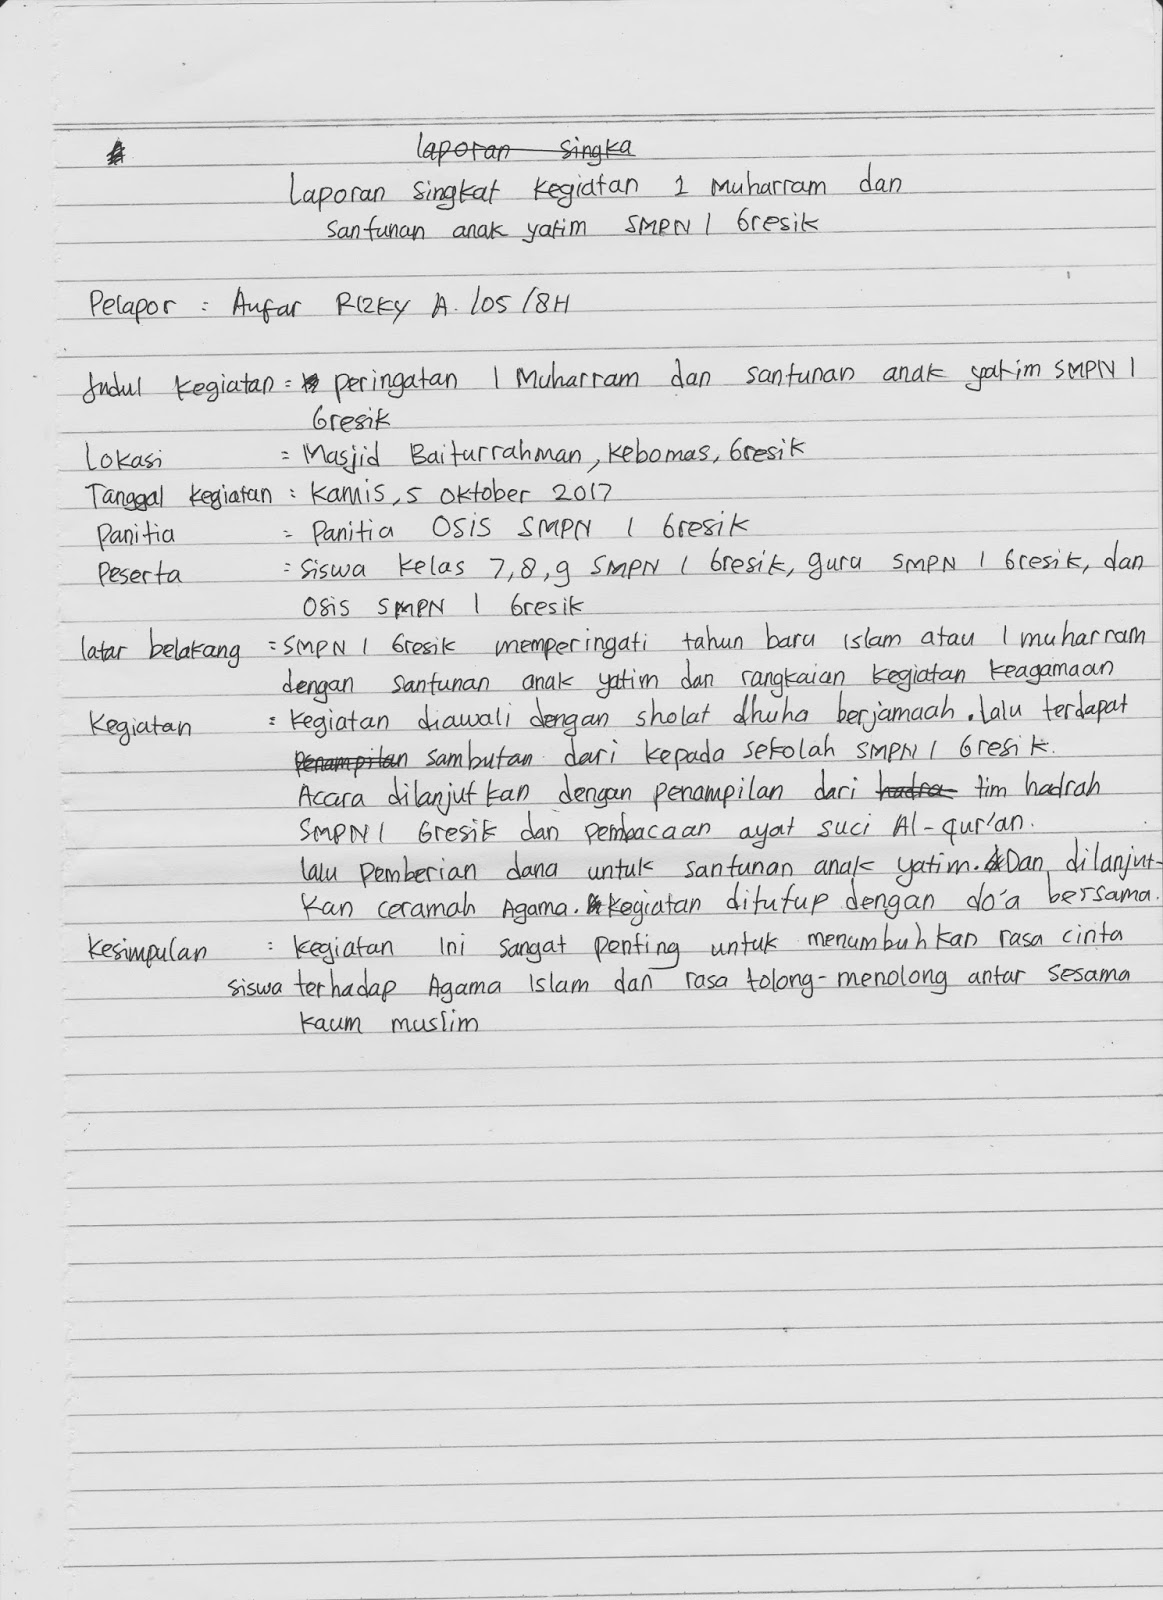 laporan singka
Laporan singkat kegiatan 1 Muharram dan
santunan anak yatim SMPN 1 Gresik
Pelapor : Aufar Rizky A. /05 /8H
Judul kegiatan = peringatan 1 Muharram dan santunan anak yatim SMPN 1
Gresik
Lokasi = Masjid Baiturrahman, kebomas, Gresik
Tanggal kegiatan : Kamis, 5 Oktober 2017
Panitia = Panitia OSIS SMPN 1 Gresik
Peserta = siswa kelas 7,8,9 SMPN 1 Gresik, guru SMPN 1 Gresik, dan
OSIS SMPN 1 Gresik
latar belakang = SMPN 1 Gresik memperingati tahun baru islam atau 1 muharram
dengan santunan anak yatim dan rangkaian kegiatan keagamaan
Kegiatan = kegiatan diawali dengan sholat dhuha berjamaah. lalu terdapat
penampilan sambutan dari kepada sekolah SMPN 1 Gresik.
Accara dilanjutkan dengan penampilan dari hadra tim hadrah
SMPN 1 Gresik dan pembacaan ayat suci Al-qur'an.
lalu pemberian dana untuk santunan anak yatim. Dan dilanjut-
kan ceramah Agama. kegiatan ditutup dengan do'a bersama.
Kesimpulan : kegiatan Ini sangat penting untuk menumbuhkan rasa cinta
siswa terhadap Agama Islam dan rasa tolong-menolong antar sesama
kaum muslim